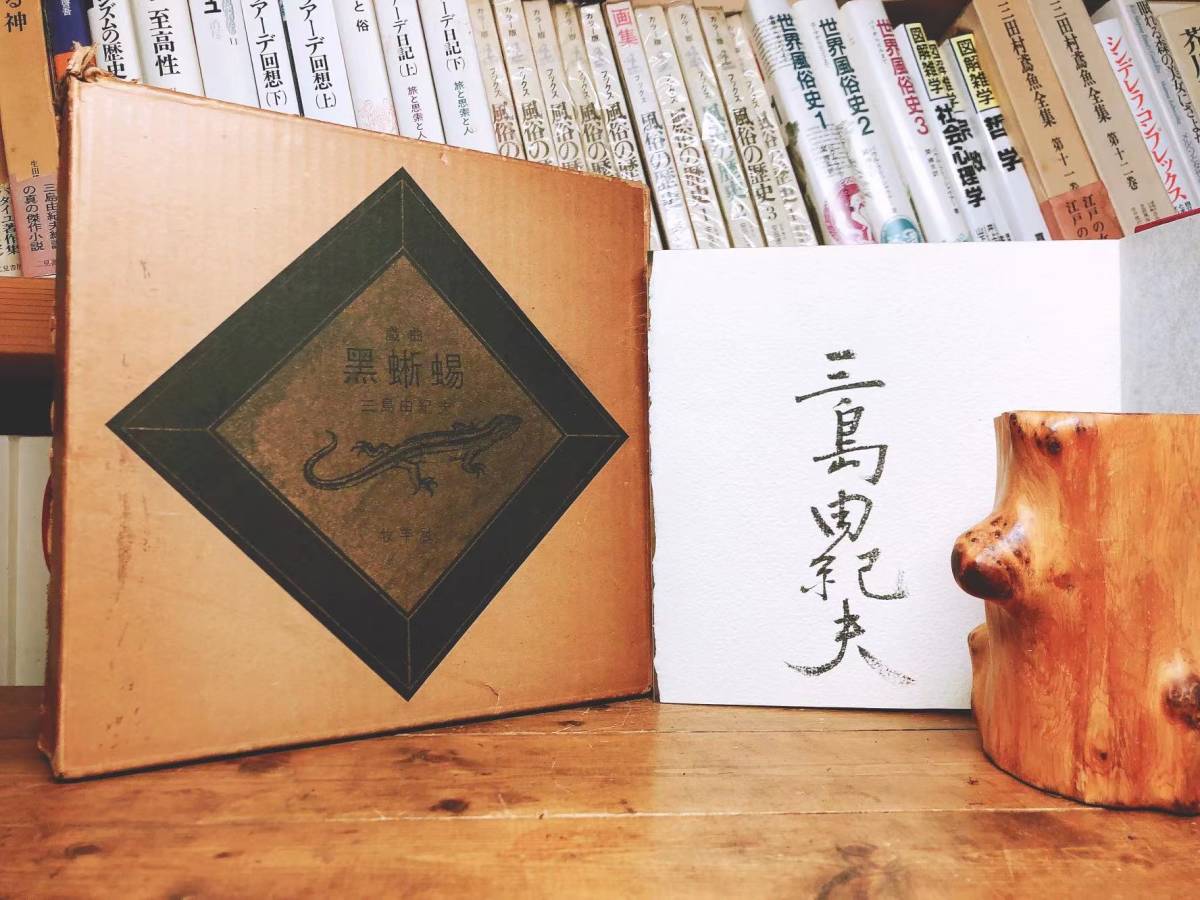 る神
ズムの歴史
至高性
アーデ回想(下)
アーデ回想(上)
と俗
アーデ日記(上)
旅と思索と人
アーデ日記(下)
旅と思索と人
カラー版
風俗の歴史
画集
風俗の歴史
風俗の歴史 3
世界風俗史 1
世界風俗史 2
世界風俗史 3
図解雑学
社会心理学
図解雑学
哲学
三田村鳶魚全集 第十一巻
三田村鳶魚全集 第十二巻
シンデレラ・コンプレックス
眠れる森の美女に
三島由紀夫絶讃
の真の傑作小説
タイユ著作集
二見書房
戯曲
黑蜥蜴
三島由紀夫
牧羊社
三島由紀夫